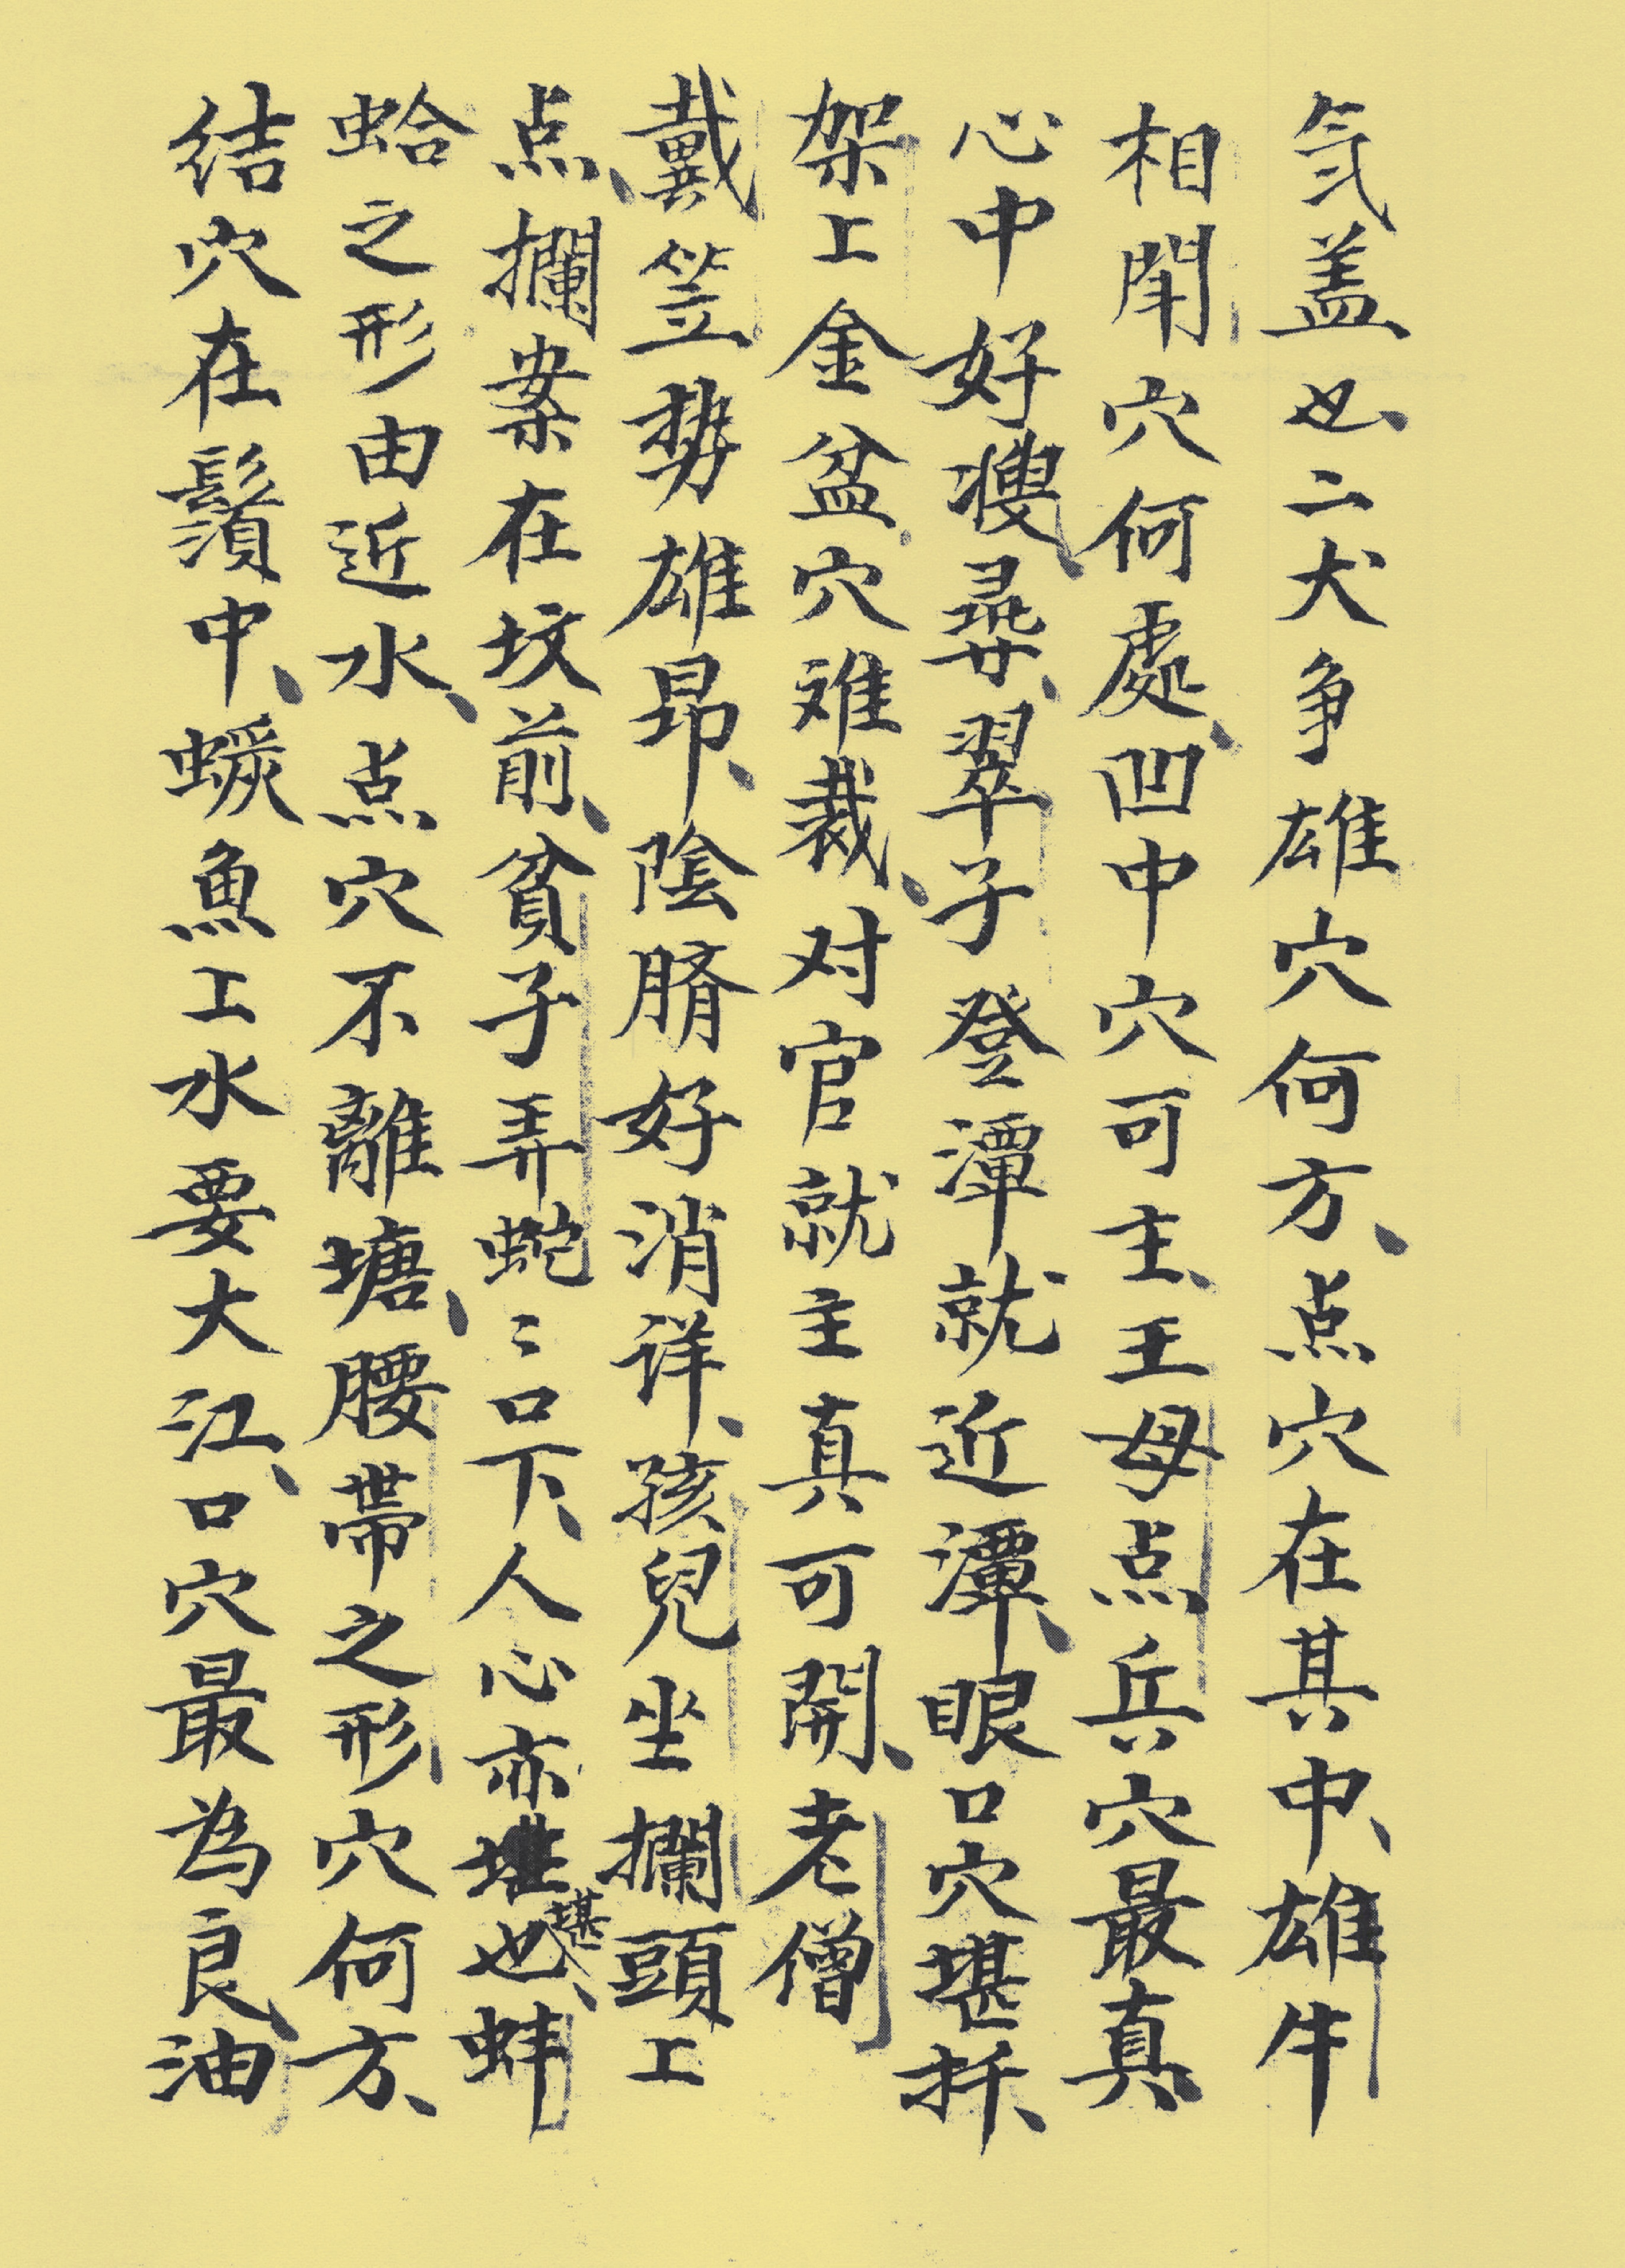 氣盖也、二犬争雄穴何方、点穴在其中、雄牛
相闘穴何處、凹中穴可主、王母点兵穴最真、
心中好搜尋、翠子登潭就近潭、眼口穴堪扦、
架上金盆穴难裁、对官就主真可開、老僧
戴笠势雄昂、陰脐好消详、孩兒坐攔頭上
点、攔案在坟前、貧子弄蛇三口下、人心亦堪也、蚌
蛤之形由近水、点穴不離塘、腰帶之形穴何方、
结穴在鬚中、魚上水要大江、口穴最為良、油